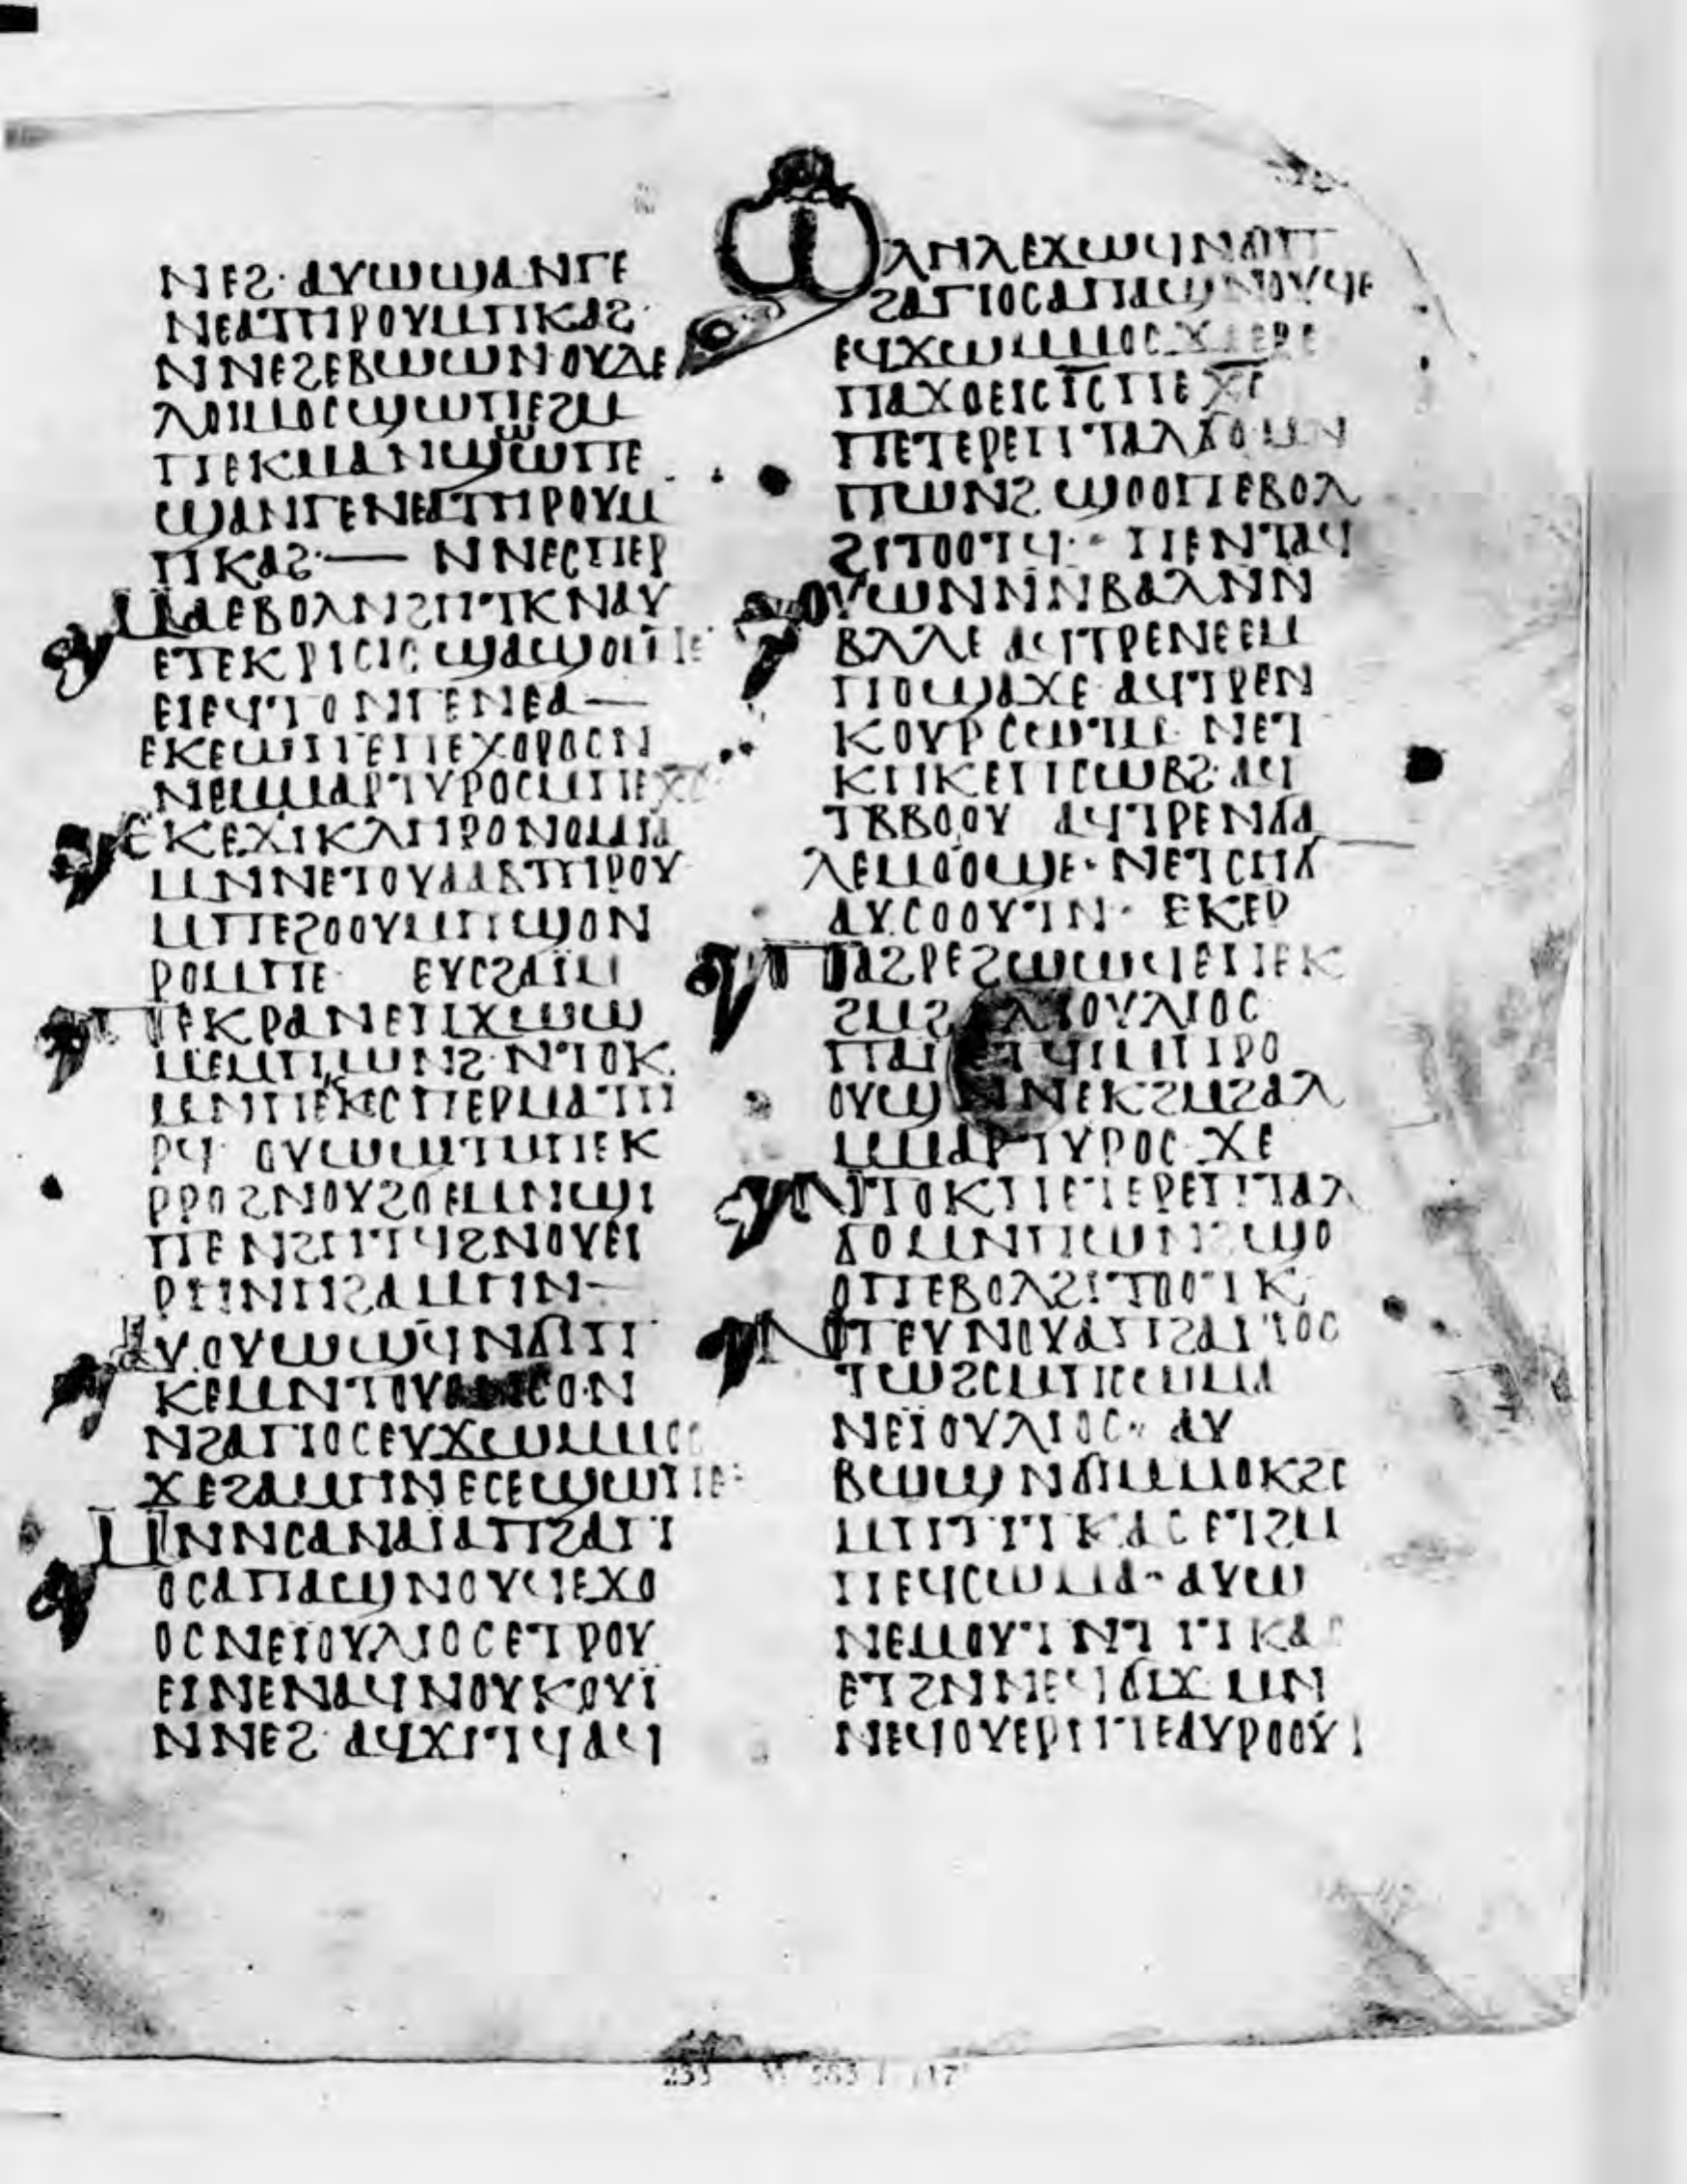 ⲛⲉϩ· ⲁⲩⲱϣⲁⲛⲧⲉ
ⲛⲉⲁⲧⲏⲣⲟⲩⲙⲡⲕⲁϩ·
ⲛⲛⲉϩⲉⲃⲱⲱⲛ ⲟⲩⲇⲉ
ⲗⲟⲓⲙⲟⲥϣⲱⲡⲉϩⲙ
ⲡⲉⲕⲙⲁⲛϣⲱⲡⲉ
ϣⲁⲛⲅⲉⲛⲉⲁⲧⲏⲣⲟⲩⲙ
ⲡⲕⲁϩ·— ⲛⲛⲉⲥⲡⲉⲣ
ⲙⲁⲉⲃⲟⲗⲛϩⲏⲧⲕⲛⲁⲩ
ⲉⲧⲉⲕⲣⲓⲥⲓⲥ ϣⲁϣⲟⲙⲧⲉ
ⲉⲓⲉϥⲧⲟⲛⲅⲉⲛⲉⲁ—
ⲉⲕⲉⲱⲡⲉⲡⲉⲭⲟⲣⲟⲥⲛ
ⲛⲉⲙⲙⲁⲣⲧⲩⲣⲟⲥⲙⲡⲉⲭⲥ
ⲉⲕⲉϫⲓⲕⲗⲏⲣⲟⲛⲟⲙⲓⲁ
ⲙⲛⲛⲉⲧⲟⲩⲁⲁⲃⲧⲏⲣⲟⲩ
ⲙⲡⲉϩⲟⲟⲩⲙⲡϣⲟⲛ
ⲣⲟⲙⲡⲉ ⲉⲩⲥϩⲁⲓⲙ
ⲡⲉⲕⲣⲁⲛⲉⲡϫⲱⲱ
ⲙⲉⲙⲡⲱⲛϩ· ⲛⲧⲟⲕ
ⲙⲛⲡⲉⲕⲥⲡⲉⲣⲙⲁⲧⲏ
ⲣϥ ⲟⲩⲱⲱⲙⲧⲙⲡⲉⲕ
ⲣⲣⲟϩⲛⲟⲩϩⲟⲉⲙⲛϣⲓ
ⲡⲉⲛϩⲏⲧϥϩⲛⲟⲩⲉⲓ
ⲣⲏⲛⲏϩⲁⲙⲏⲛ—
ⲁⲩⲟⲩⲱϣϥⲛϭⲓⲡ
ⲕⲉⲙⲛⲧⲟⲩⲉⲛⲥⲟⲛ
ⲛϩⲁⲅⲓⲟⲥⲉⲩϫⲱⲙⲙⲟⲥ
ϫⲉϩⲁⲙⲏⲛⲉⲥⲉϣⲱⲡⲉ
ⲙⲛⲛⲥⲁⲛⲁⲓⲁⲡϩⲁⲅⲓ
ⲟⲥⲁⲡⲁϣⲛⲟⲩϥⲉϫⲟ
ⲟⲥⲛⲉⲓⲟⲩⲗⲓⲟⲥⲉⲧⲣⲟⲩ
ⲉⲓⲛⲉⲛⲁϥⲛⲟⲩⲕⲟⲩⲓ
ⲛⲛⲉϩ· ⲁϥϫⲓⲧϥⲁϥ
ϣⲁⲏⲗⲉϫⲱϥⲛϭⲓⲡ
ϩⲁⲅⲓⲟⲥⲁⲡⲁϣⲛⲟⲩϥⲉ
ⲉϥϫⲱⲙⲙⲟⲥ ϫⲉⲣⲉ
ⲡⲁϫⲟⲉⲓⲥⲓⲥⲡⲉⲭⲥ
ⲡⲉⲧⲉⲣⲉⲡⲧⲁⲗϭⲟⲙⲛ
ⲡⲱⲛϩ ϣⲟⲟⲡⲉⲃⲟⲗ
ϩⲓⲧⲟⲟⲧϥ· ⲡⲉⲛⲧⲁϥ
ⲟⲩⲱⲛⲛⲛⲃⲁⲗⲛⲛ
ⲃⲗⲗⲉ ⲁϥⲧⲣⲉⲛⲉⲉⲙ
ⲡⲟϣⲁϫⲉ ⲁϥⲧⲣⲉⲛ
ⲕⲟⲩⲣ ⲥⲱⲧⲙ ⲛⲉⲧ
ⲕⲏⲕⲉⲡⲥⲱⲃϩ· ⲁϥ
ⲧⲃⲃⲟⲟⲩ ⲁϥⲧⲣⲉⲛϭⲁ
ⲗⲉⲙⲟⲟϣⲉ· ⲛⲉⲧⲥⲏϭ
ⲁⲩⲥⲟⲟⲩⲧⲛ· ⲉⲕⲉⲣ
ⲡⲁϩⲣⲉϩⲱⲱϥⲉⲡⲉⲕ
ϩⲙϩⲁⲗⲓⲟⲩⲗⲓⲟⲥ
ⲡⲁⲓ ⲉⲧϥⲓⲙⲡⲣⲟ
ⲟⲩϣ ⲛⲛⲉⲕϩⲙϩⲁⲗ
ⲙⲙⲁⲣⲧⲩⲣⲟⲥ ϫⲉ
ⲛⲧⲟⲕⲡⲉⲧⲉⲣⲉⲡⲧⲁⲗ
ϭⲟⲙⲛⲡⲱⲛϩ ϣⲟ
ⲟⲡⲉⲃⲟⲗϩⲓⲧⲟⲟⲧⲕ
ⲛⲧⲉⲩⲛⲟⲩⲁⲡϩⲁⲅⲓⲟⲥ
ⲧⲱϩⲥⲙⲡⲥⲱⲙⲁ
ⲛⲉⲓⲟⲩⲗⲓⲟⲥ· ⲁⲩ
ⲃⲱϣ ⲛϭⲓⲙⲙⲟⲕϩⲥ
ⲙⲡⲧⲧⲕⲁⲥ ⲉⲧϩⲙ
ⲡⲉϥⲥⲱⲙⲁ· ⲁⲩⲱ
ⲛⲉⲙⲟⲩⲧ ⲛⲧ ⲧⲕⲁⲥ
ⲉⲧϩⲛⲛⲉϥϭⲓϫ ⲙⲛ
ⲛⲉϥⲟⲩⲉⲣⲏⲧⲉⲁⲩⲣⲟⲟⲩⲧ